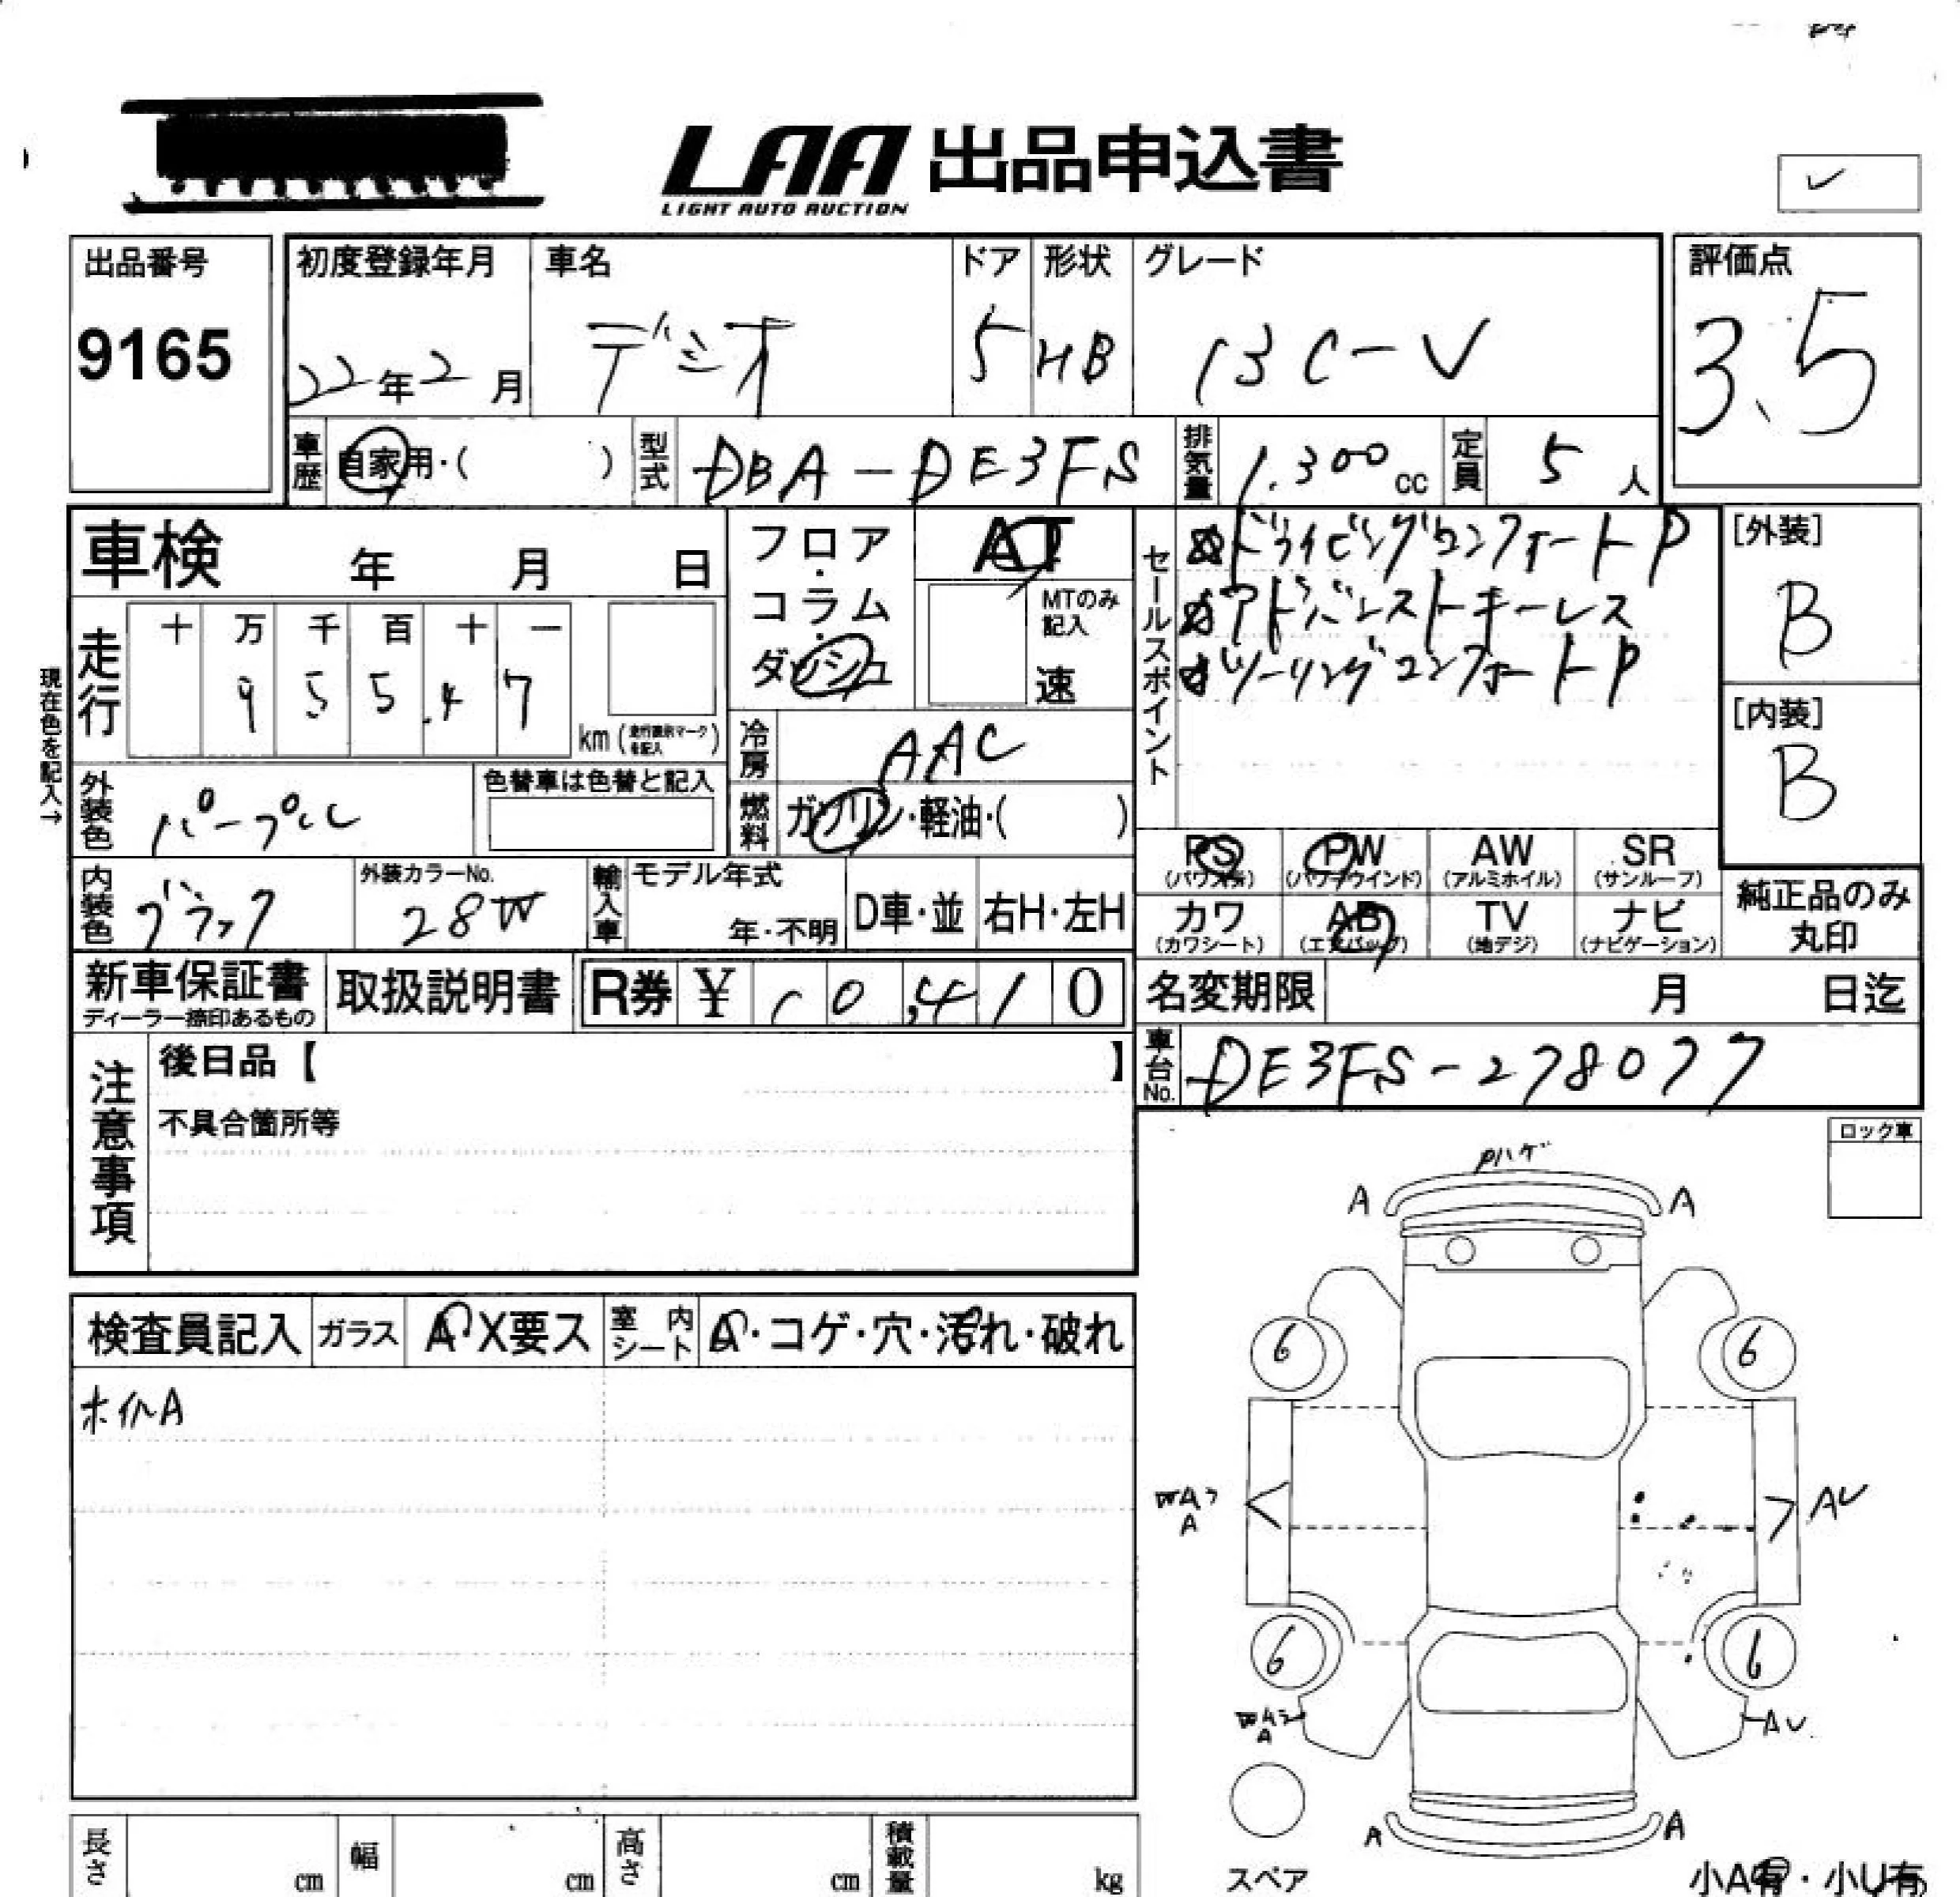 LAA 出品申込書
LIGHT AUTO AUCTION
✓
出品番号
9165
初度登録年月
22年2月
車名
デミオ
ドア
5
形状
HB
グレード
13C-V
評価点
3.5
車歴
自家用・( )
型式
DBA-DE3FS
排気量
1.300cc
定員
5人
車検 年 月 日
フロア・コラム・ダッシュ
AT
MTのみ記入
速
セールスポイント
ドライビングコンフォートP
アドバンストキーレス
ツーリングコンフォートP
[外装]
B
[内装]
B
現在色を記入→
走行
十 万 千 百 十 一
9 5 5.4 7
km(走行表示マークを記入)
冷房
AAC
外装色
パープル
色替車は色替と記入
燃料
ガソリン・軽油・( )
PS AW SR
PW
(パワステ) (パワーウインド) (アルミホイル) (サンルーフ)
カワ AB TV ナビ
(カワシート) (エアバッグ) (地デジ) (ナビゲーション)
純正品のみ
丸印
内装色
ブラック
外装カラーNo.
28W
輸入車
モデル年式
年・不明
D車・並
右H・左H
新車保証書
ディーラー捺印あるもの
取扱説明書
R券 ¥ 10,410
名変期限 月 日迄
車台No.
DE3FS-278077
注意事項
後日品【 】
不具合箇所等
ロック車
Pハゲ
A A
検査員記入
ガラス
A・X要ス
室内シート
A・コゲ・穴・汚れ・破れ
ホイルA
6 6
A
AU
6 6
A
AU
A A
スペア
小A有・小U有
長さ cm
幅 cm
高さ cm
積載量 kg